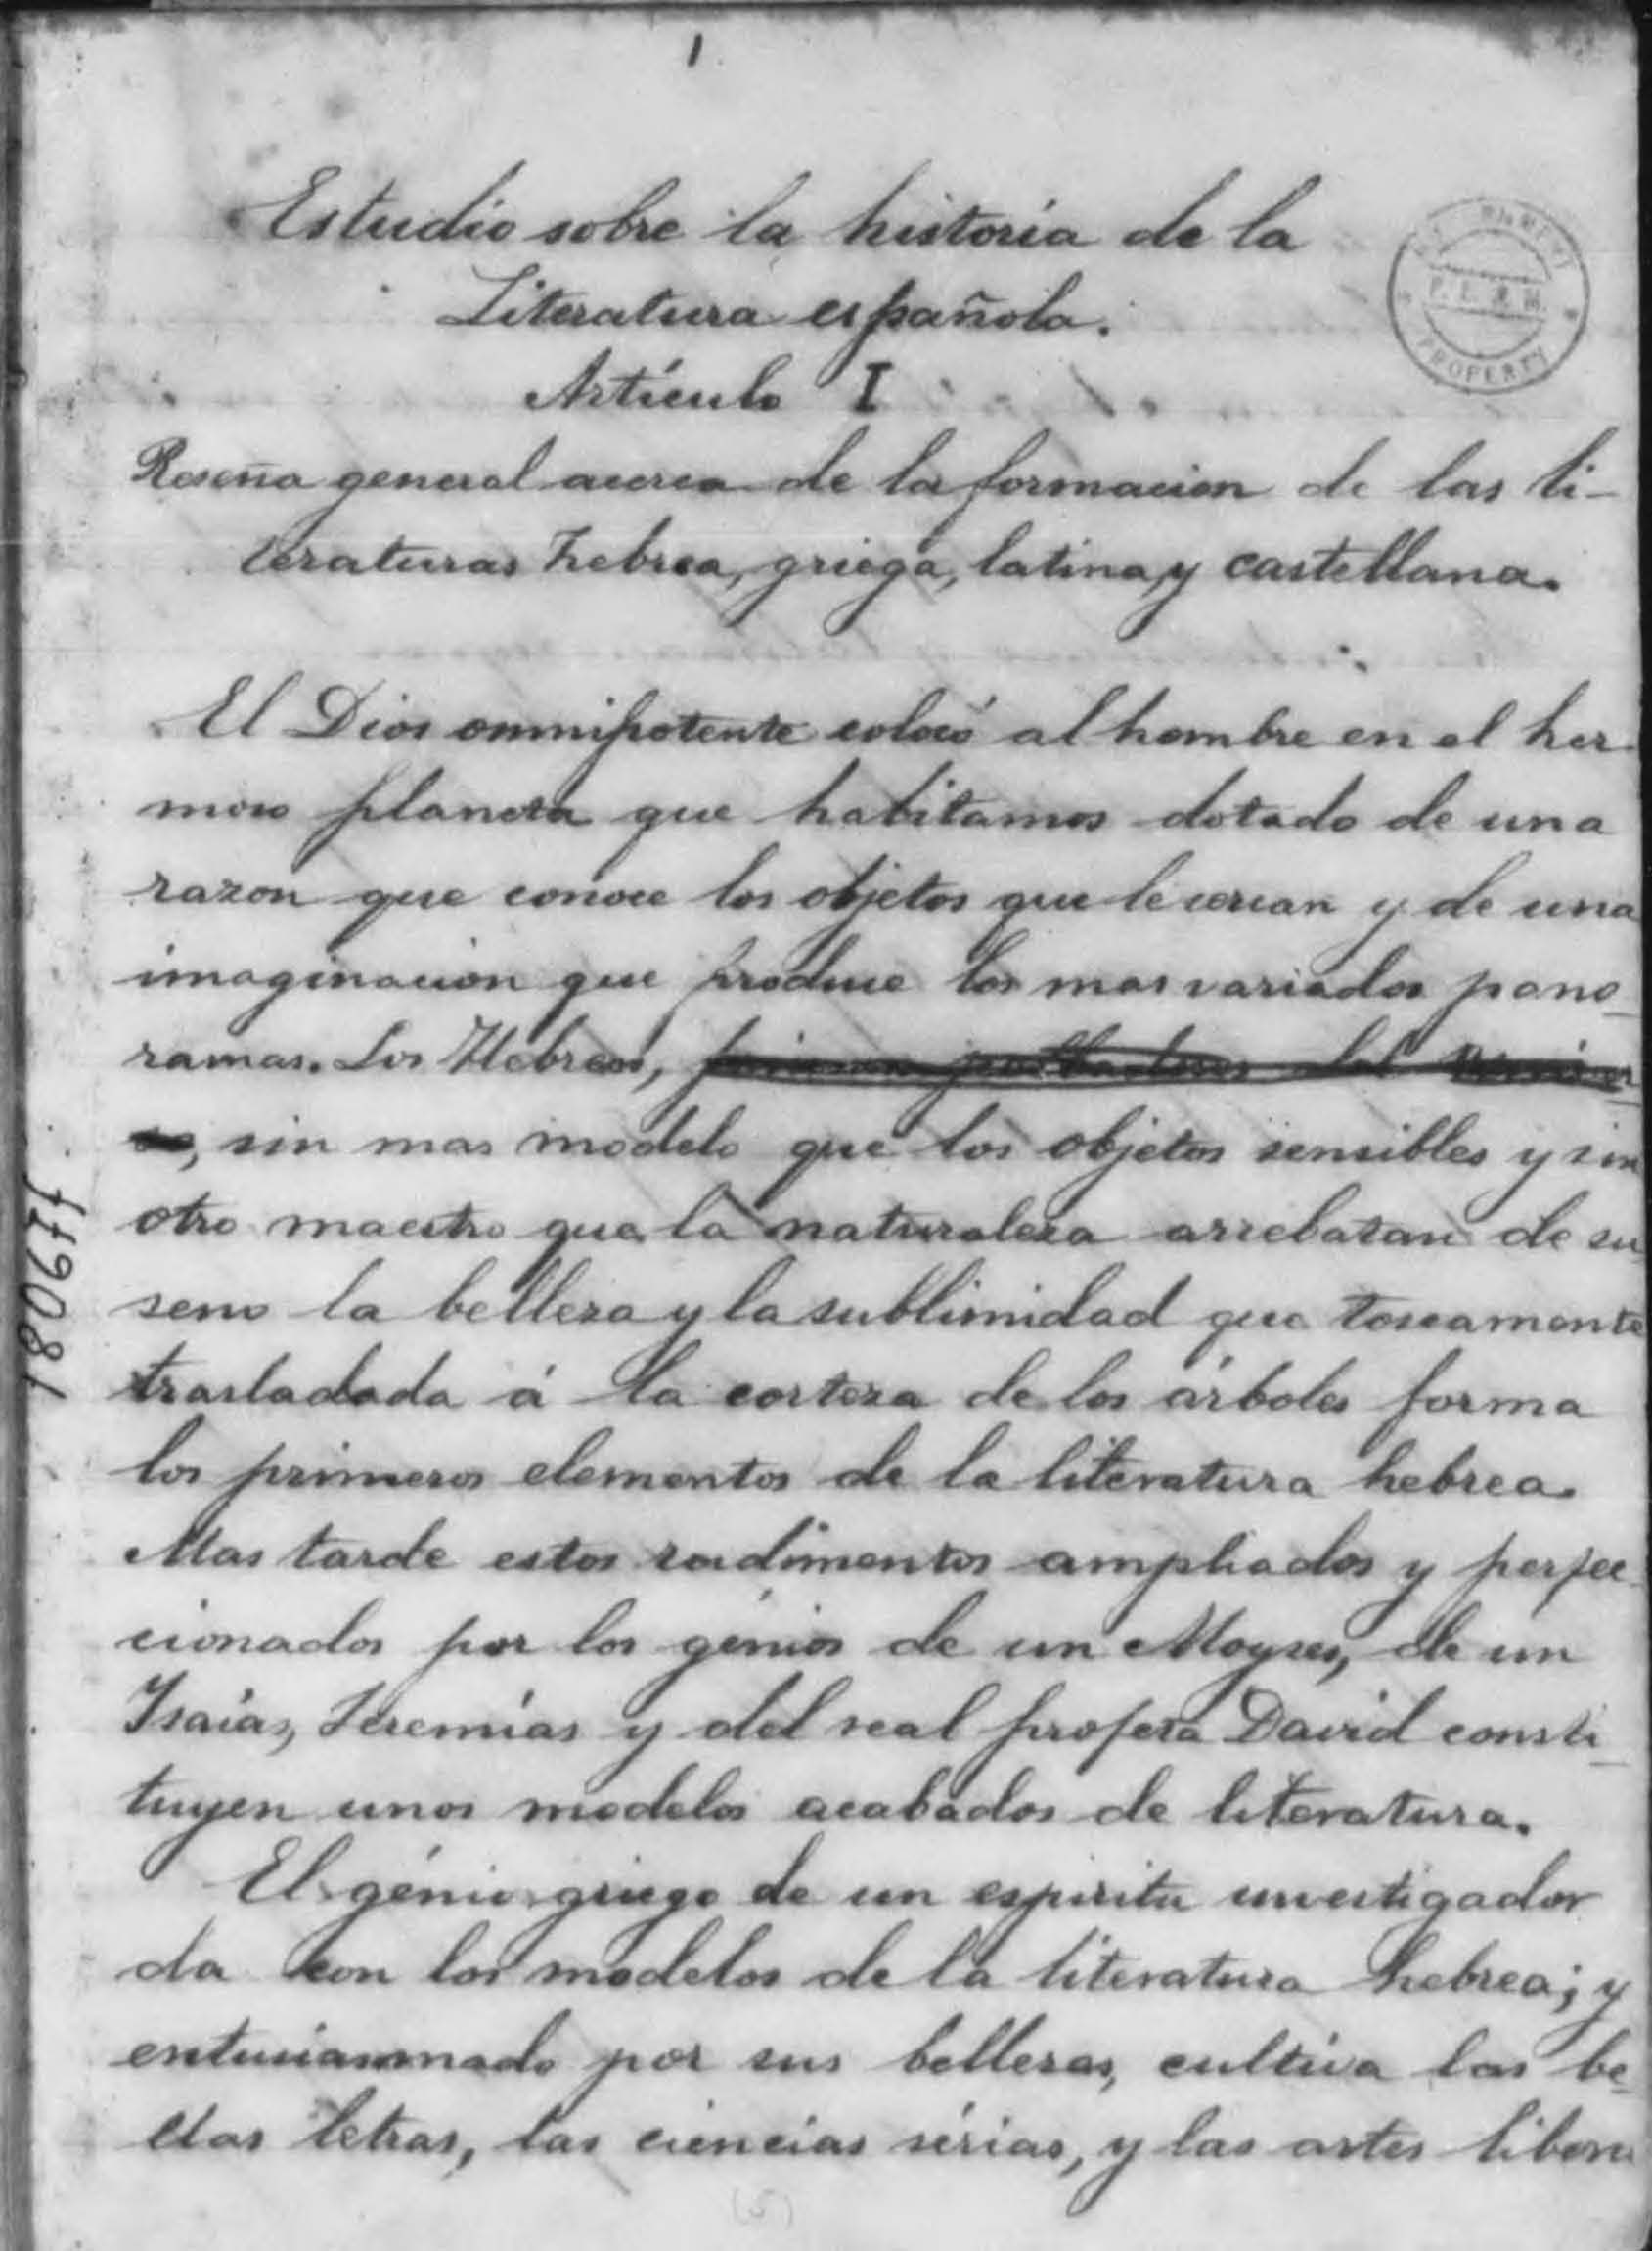 1
Estudio sobre la historia de la
Literatura española.
Artículo I
Reseña general acerca de la formacion de las li-
teraturas hebrea, griega, latina, y castellana.
El Dios omnipotente colocó al hombre en el her
moso planeta que habitamos dotado de una
razon que conoce los objetos que le cercan y de una
imaginacion que produce los mas variados pano_
ramas. Los Hebreos,
, sin mas modelo que los objetos sensibles y sin
otro maestro que la naturaleza arrebatan de su
seno la belleza y la sublimidad que toscamente
trasladada á la corteza de los árboles forma
los primeros elementos de la literatura hebrea.
Mas tarde estos rudimentos ampliados y perfec_
cionados por los génios de un Moyses, de un
Isaías, Jeremías y del real profeta David consti_
tuyen unos modelos acabados de literatura.
El génio griego de un espiritu investigador
da con los modelos de la literatura hebrea; y
entusiasmado por sus bellezas, cultiva las be_
llas letras, las ciencias sérias, y las artes libera
PROPERTY
P. L. & M.
179081
(5)